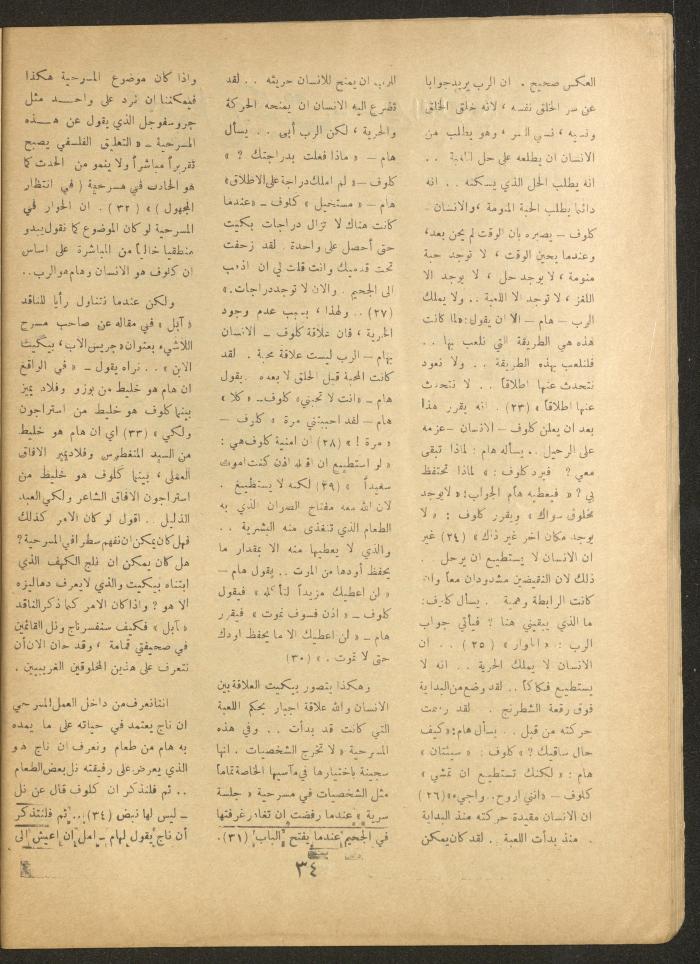 العكس صحيح . ان الرب يريد جوابا
عن سر الخلق نفسه ، لانه خلق الخلق
ونسيه ، نسي السر ، وهو يطلب من
الانسان ان يطلعه على حل اللعبة . .
انه يطلب الحل الذي يسكنه . . انه
دائما يطلب الحبة المنومة ، والانسان -
كلوف - يصبره بان الوقت لم يحن بعد ،
وعندما يحين الوقت ، لا توجد حبة
منومة ، لا يوجد حل ، لا يوجد الا
اللغز ، لا توجد الا اللعبة . . ولا يملك
الرب - هام - الا ان يقول : « لما كانت
هذه هي الطريقة التي نلعب بها . .
فلنلعب بهذه الطريقة . . ولا نعود
نتحدث عنها اطلاقاً . . لا نتحدث
عنها اطلاقاً » (٢٣) . انه يقرر هذا
بعد ان يعلن كلوف - الانسان - عزمه
على الرحيل . . يسأله هام : لماذا تبقى
معي ؟ فيرد كلوف : « لماذا تحتفظ
بي ؟ » فيعطيه هام الجواب : « لايوجد
مخلوق سواك » ويقرر كلوف : « لا
يوجد مكان اخر غير ذاك » (٢٤) غير
ان الانسان لا يستطيع ان يرحل .
ذلك لان النقيضين مشدودان معاً وان
كانت الرابطة وهمية . يسأل كلوف :
ما الذي يبقيني هنا ؟ فيأتي جواب
الرب : « الحوار » (٢٥) . . ان
الانسان لا يملك الحرية . . انه لا
يستطيع فكاكاً . . لقد وضع من البداية
فوق رقعة الشطرنج . لقد رسمت
حركته من قبل . . يسأل هام : « كيف
حال ساقيك ؟ » كلوف : « سيئتان »
هام : « لكنك تستطيع ان تمشي »
كلوف - « انني اروح . . واجيء » (٢٦)
ان الانسان مقيدة حركته منذ البداية
. منذ بدأت اللعبة . لقد كان يمكن
للرب ان يمنح للانسان حريته . . لقد
تضرع اليه الانسان ان يمنحه الحركة
والحرية ، لكن الرب أبى . . يسأل
هام - « ماذا فعلت بدراجتك ؟ »
كلوف - « لم املك دراجة على الاطلاق »
هام - « مستحيل » كلوف - « عندما
كانت هناك لا تزال دراجات بكيت
حتى أحصل على واحدة . لقد زحفت
تحت قدميك وانت قلت لي ان اذهب
الى الجحيم . والان لا توجد دراجات . »
(٢٧) . . ولهذا ، بسبب عدم وجود
الحرية ، فان علاقة كلوف - الانسان
بهام - الرب ليست علاقة محبة . لقد
كانت المحبة قبل الخلق لا بعده . يقول
هام - « انت لا تحبني » كلوف - « كلا »
هام - لقد احببتني مرة » كلوف -
« مرة ! » (٢٨) ان امنية كلوف هي :
« لو استطيع ان اقتله اذن كنت اموت
سعيداً » (٢٩) لكنه لا يستطيع .
لان الله معه مفتاح الصوان الذي به
الطعام الذي تتغذى منه البشرية . .
والذي لا يعطيها منه الا بمقدار ما
يحفظ أودها من الموت . . يقول هام -
« لن اعطيك مزيداً لتأكله » فيقول
كلوف - « اذن فسوف نموت » فيقرر
هام - « لن اعطيك الا ما يحفظ اودك
حتى لا تموت . » (٣٠)
وهكذا يتصور بيكيت العلاقة بين
الانسان والله علاقة اجبار بحكم اللعبة
التي كانت قد بدأت . . وفي هذه
المسرحية « لا تخرج الشخصيات . انها
سجينة باختيارها في مآسيها الخاصة تماماً
مثل الشخصيات في مسرحية « جلسة
سرية » عندما رفضت ان تغادر غرفتها
في الجحيم عندما يفتح الباب » (٣١) .
واذا كان موضوع المسرحية هكذا
فيمكننا ان نرد على واحد مثل
جروسفوجل الذي يقول عن هذه
المسرحية - « التعليق الفلسفي يصبح
تقريراً مباشراً ولا ينمو من الحدث كما
هو الحادث في مسرحية ( في انتظار
المجهول ) » (٣٢) . ان الحوار في
المسرحية لو كان الموضوع كما نقول يبدو
منطقيا خالياً من المباشرة على اساس
ان كلوف هو الانسان وهام هو الرب . .
ولكن عندما نتناول رأيا للناقد
« آبل » في مقاله عن صاحب مسرح
اللاشيء بعنوان « جويس الاب ، بيكيت
الابن » . . نراه يقول - « في الواقع
ان هام هو خليط من بوزو وفلاديمير
بينما كلوف هو خليط من استراجون
ولكي » (٣٣) اي ان هام هو خليط
من السيد المتغطرس وفلاديمير الافاق
العقلي ، بينما كلوف هو خليط من
استراجون الافاق الشاعر ولكي العبد
الذليل . . اقول لو كان الامر كذلك
فهل كان يمكن ان نفهم سطرا في المسرحية ؟
هل كان يمكن ان نلج الكهف الذي
ابتناه بيكيت والذي لا يعرف دهاليزه
الا هو ؟ واذا كان الامر كما ذكر الناقد
« آبل » فكيف سنفسر ناج ونل القائمين
في صحيفتي قمامة » وقد حان الان أن
نتعرف على هذين المخلوقين الغريبين .
اننا نعرف من داخل العمل المسرحي
ان ناج يعتمد في حياته على ما يمده
به هام من طعام ونعرف ان ناج هو
الذي يعرض على رفيقته نل بعض الطعام
. . ثم فلنتذكر ان كلوف قال عن نل
- ليس لها نبض (٣٤) . . ثم فلنتذكر
أن ناج يقول لهام - امل ان اعيش الى
٣٤